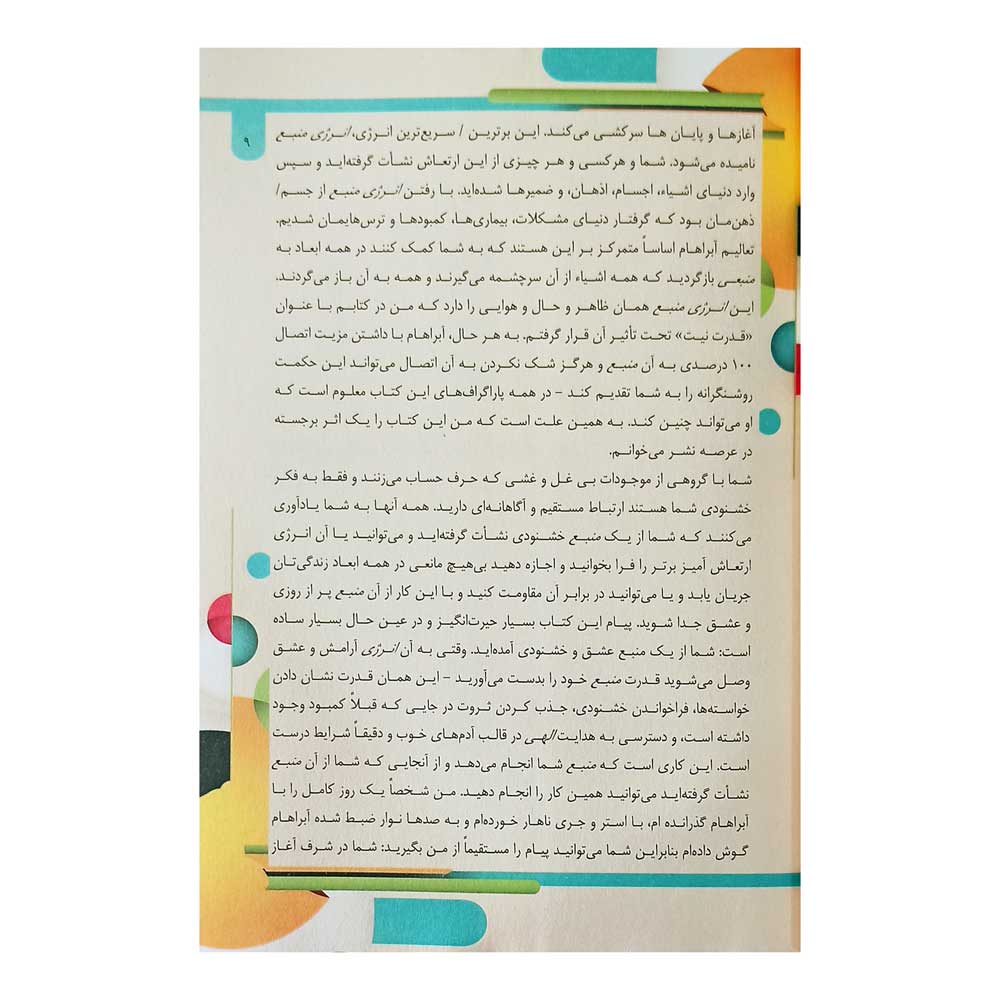 ۹
آغازها و پایان ها سرکشی می‌کند. این برترین / سریع‌ترین انرژی، انرژی منبع
نامیده می‌شود. شما و هرکسی و هر چیزی از این ارتعاش نشأت گرفته‌اید و سپس
وارد دنیای اشیاء، اجسام، اذهان، و ضمیرها شده‌اید. با رفتن انرژی منبع از جسم/
ذهن‌مان بود که گرفتار دنیای مشکلات، بیماری‌ها، کمبودها و ترس‌هایمان شدیم.
تعالیم آبراهام اساساً متمرکز بر این هستند که به شما کمک کنند در همه ابعاد به
منبعی بازگردید که همه اشیاء از آن سرچشمه می‌گیرند و همه به آن باز می‌گردند.
این انرژی منبع همان ظاهر و حال و هوایی را دارد که من در کتابم با عنوان
«قدرت نیت» تحت تأثیر آن قرار گرفتم. به هر حال، آبراهام با داشتن مزیت اتصال
۱۰۰ درصدی به آن منبع و هرگز شک نکردن به آن اتصال می‌تواند این حکمت
روشنگرانه را به شما تقدیم کند – در همه پاراگراف‌های این کتاب معلوم است که
او می‌تواند چنین کند. به همین علت است که من این کتاب را یک اثر برجسته
در عرصه نشر می‌خوانم.
شما با گروهی از موجودات بی غل و غشی که حرف حساب می‌زنند و فقط به فکر
خشنودی شما هستند ارتباط مستقیم و آگاهانه‌ای دارید. همه آنها به شما یادآوری
می‌کنند که شما از یک منبع خشنودی نشأت گرفته‌اید و می‌توانید یا آن انرژی
ارتعاش آمیز برتر را فرا بخوانید و اجازه دهید بی‌هیچ مانعی در همه ابعاد زندگی‌تان
جریان یابد و یا می‌توانید در برابر آن مقاومت کنید و با این کار از آن منبع پر از روزی
و عشق جدا شوید. پیام این کتاب بسیار حیرت‌انگیز و در عین حال بسیار ساده
است: شما از یک منبع عشق و خشنودی آمده‌اید. وقتی به آن انرژی آرامش و عشق
وصل می‌شوید قدرت منبع خود را بدست می‌آورید – این همان قدرت نشان دادن
خواسته‌ها، فراخواندن خشنودی، جذب کردن ثروت در جایی که قبلاً کمبود وجود
داشته است، و دسترسی به هدایت الهی در قالب آدم‌های خوب و دقیقاً شرایط درست
است. این کاری است که منبع شما انجام می‌دهد و از آنجایی که شما از آن منبع
نشأت گرفته‌اید می‌توانید همین کار را انجام دهید. من شخصاً یک روز کامل را با
آبراهام گذرانده ام، با استر و جری ناهار خورده‌ام و به صدها نوار ضبط شده آبراهام
گوش داده‌ام بنابراین شما می‌توانید پیام را مستقیماً از من بگیرید: شما در شرف آغاز